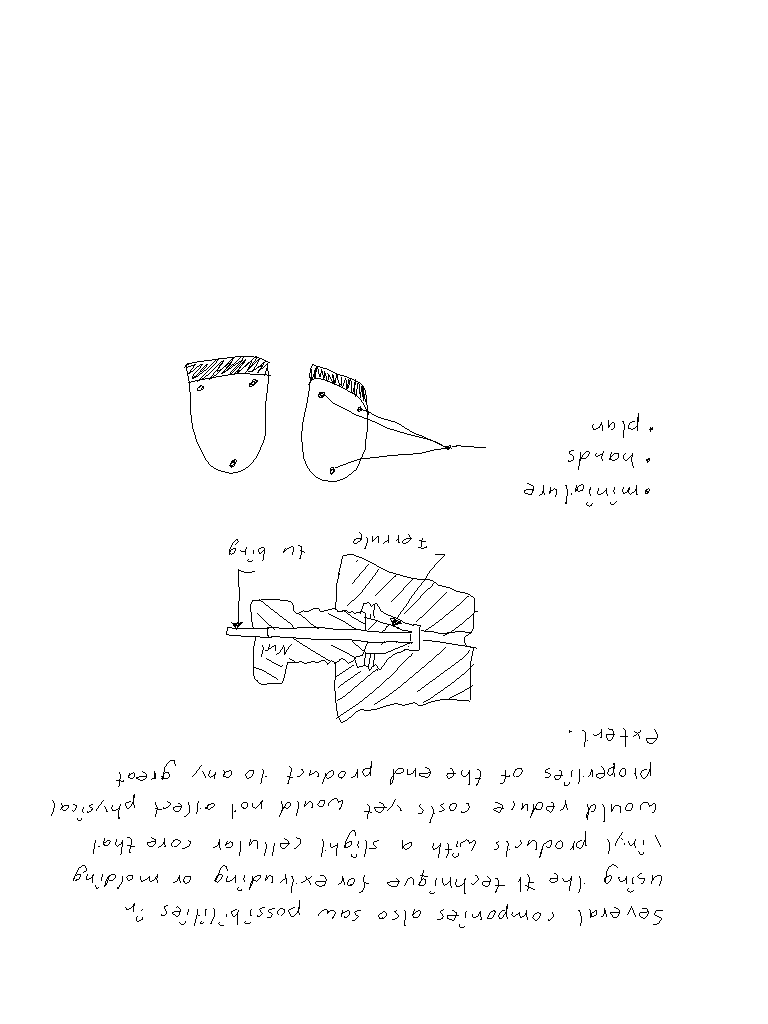 Several companies also saw possibilities in
using the 71 technique for extruding or molding
vinyl products with a slight cellular core that
would reduce costs yet would not affect physical
properties of the end product to any great
extent.
Nut
tubing
Ferrule
• miniature
• hands
• plan